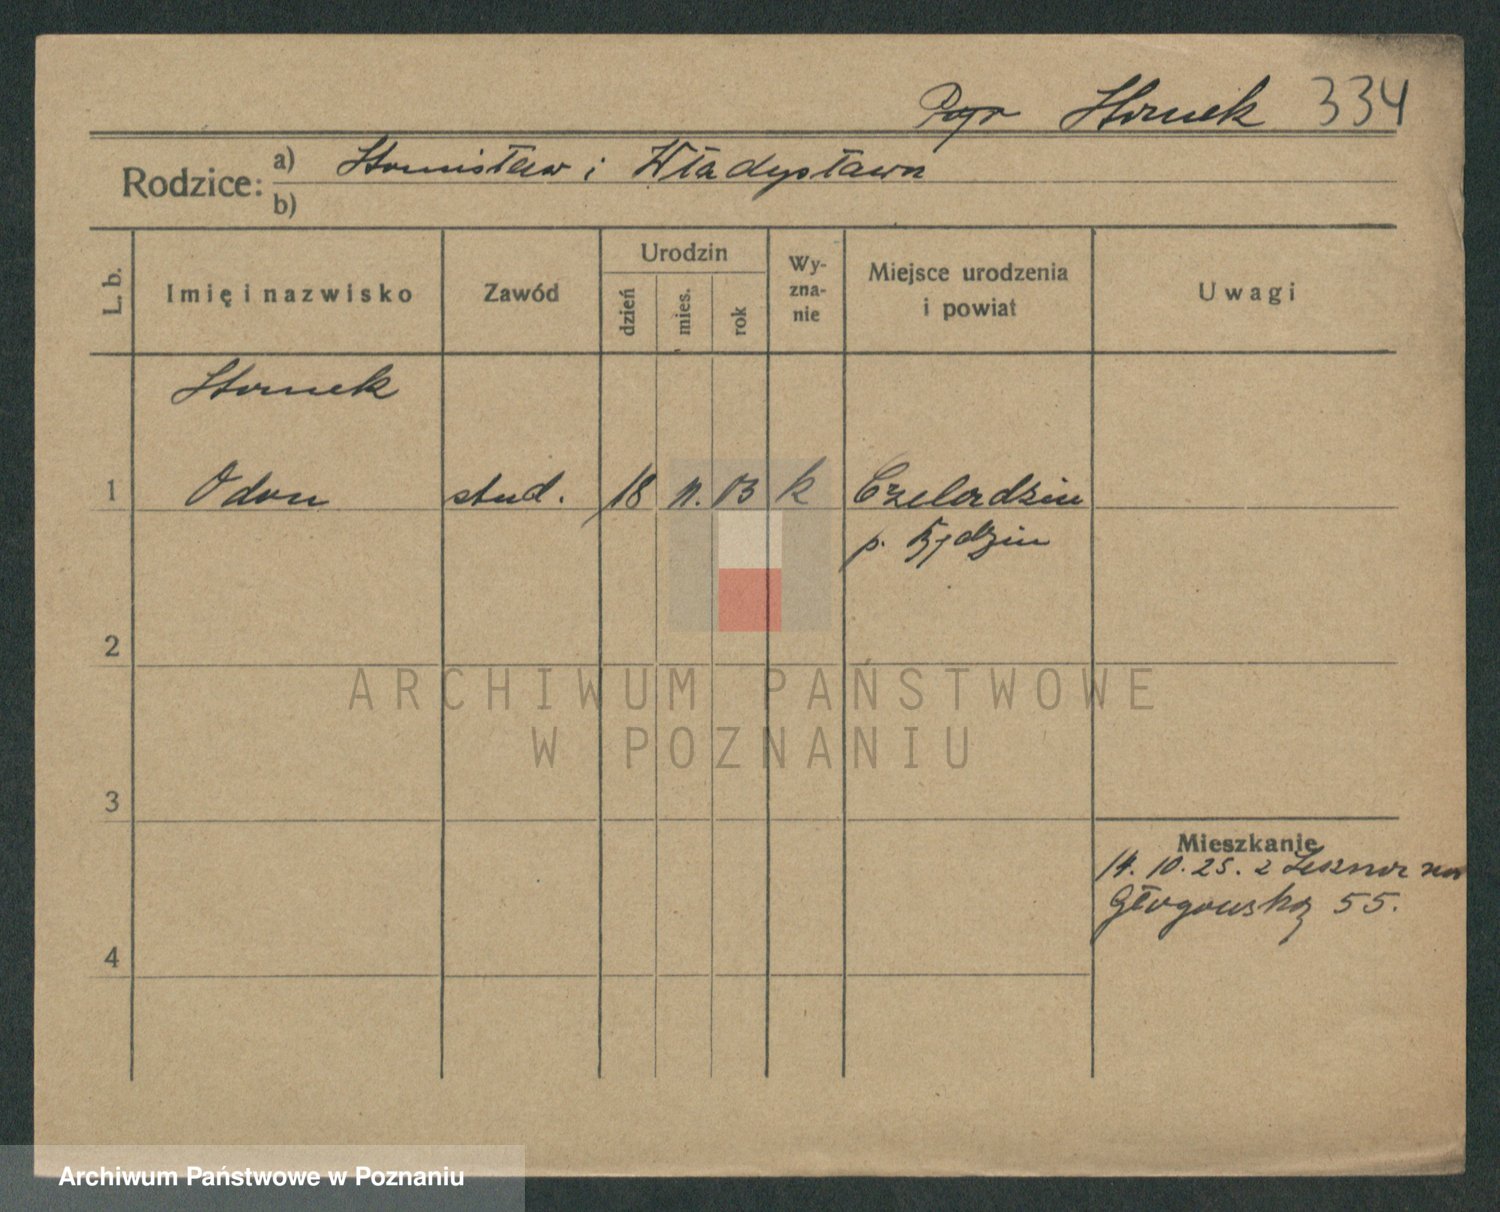 Stornek 334
Rodzice: a) Stanisław i Władysława
b)
L. b. Imię i nazwisko Zawód Urodzin dzień mies. rok Wy-zna-nie Miejsce urodzenia i powiat Uwagi
Stornek
1 Odon stud. 18 11. 03 k Czeladzin
p. Będzin
2
ARCHIWUM PAŃSTWOWE
W POZNANIU
3
Mieszkanie
14. 10. 25. z Leszna na
4 Głogowską 55.
Archiwum Państwowe w Poznaniu